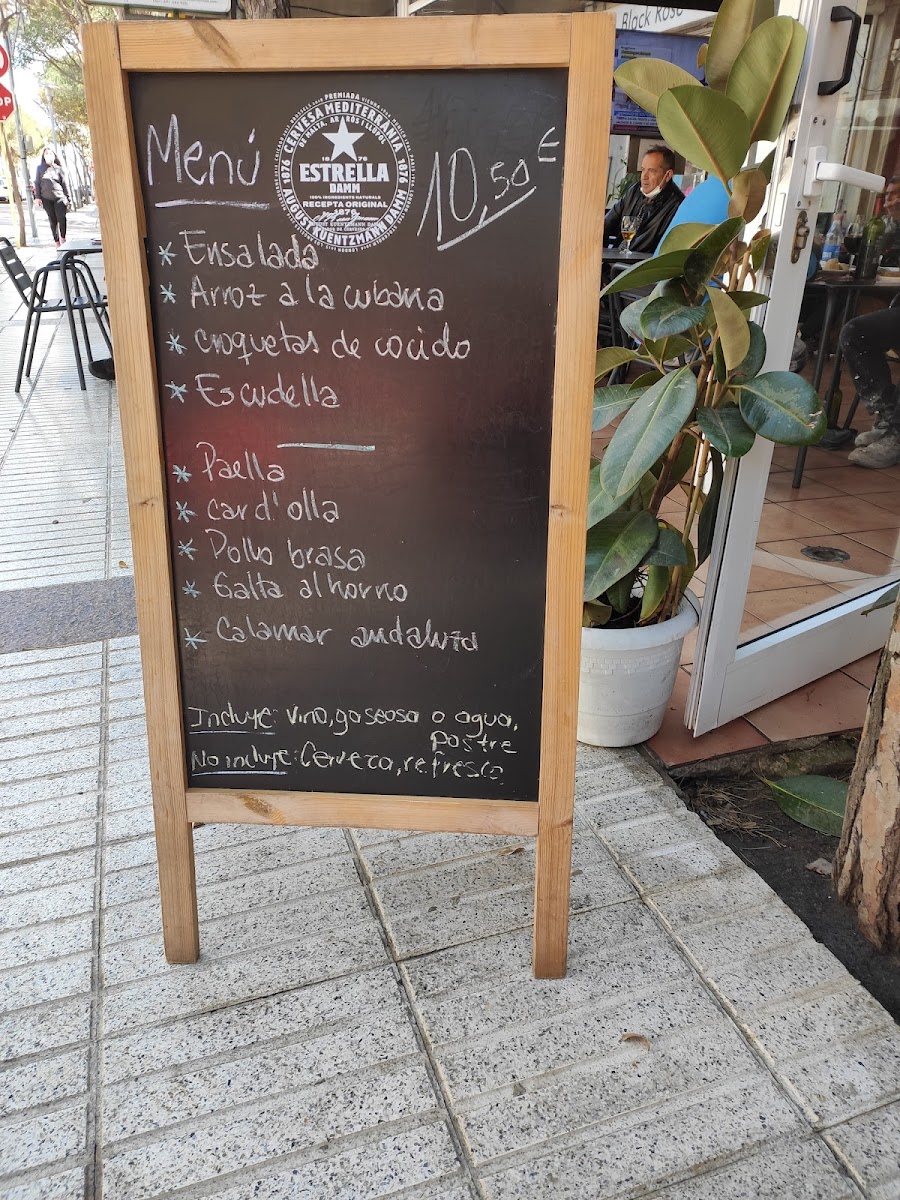 Black Rose
STOP
Menú
PREMIADA
CERVESA MEDITERRÀNIA
DE MALTA, ARRÒS I LLÚPOL
1876
1876
ESTRELLA
DAMM
100% INGREDIENTS NATURALS
RECEPTA ORIGINAL
1876
AUGUST KUENTZMANN DAMM
10,50€
* Ensalada
* Arroz a la cubana
* croquetas de cocido
* Escudella
* Paella
* car d'olla
* Pollo brasa
* Galta al horno
* Calamar andaluza
Incluye: Vino, gaseosa o agua,
postre
No incluye: Cerveza, refresco